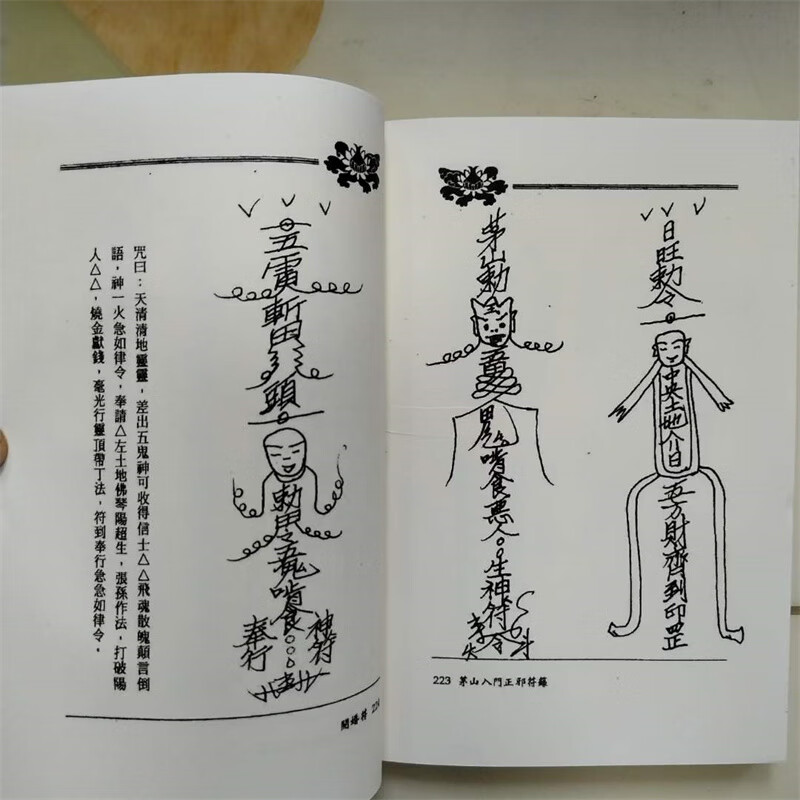 日旺勅令
中央土地
五方財齊到印罡
茅山勅
啃食惡人
生神符令
斗
223 茅山入門正邪符籙
五雷斬
頭
勅
啃食
神符
奉行
咒曰：天清清地靈靈，差出五鬼神可收得信士△△飛魂散魄顛言倒
語，神一火急如律令，奉請△左土地佛琴陽超生，張孫作法，打破陽
人△△，燒金獻錢，毫光行靈頂帶丁法，符到奉行急急如律令。